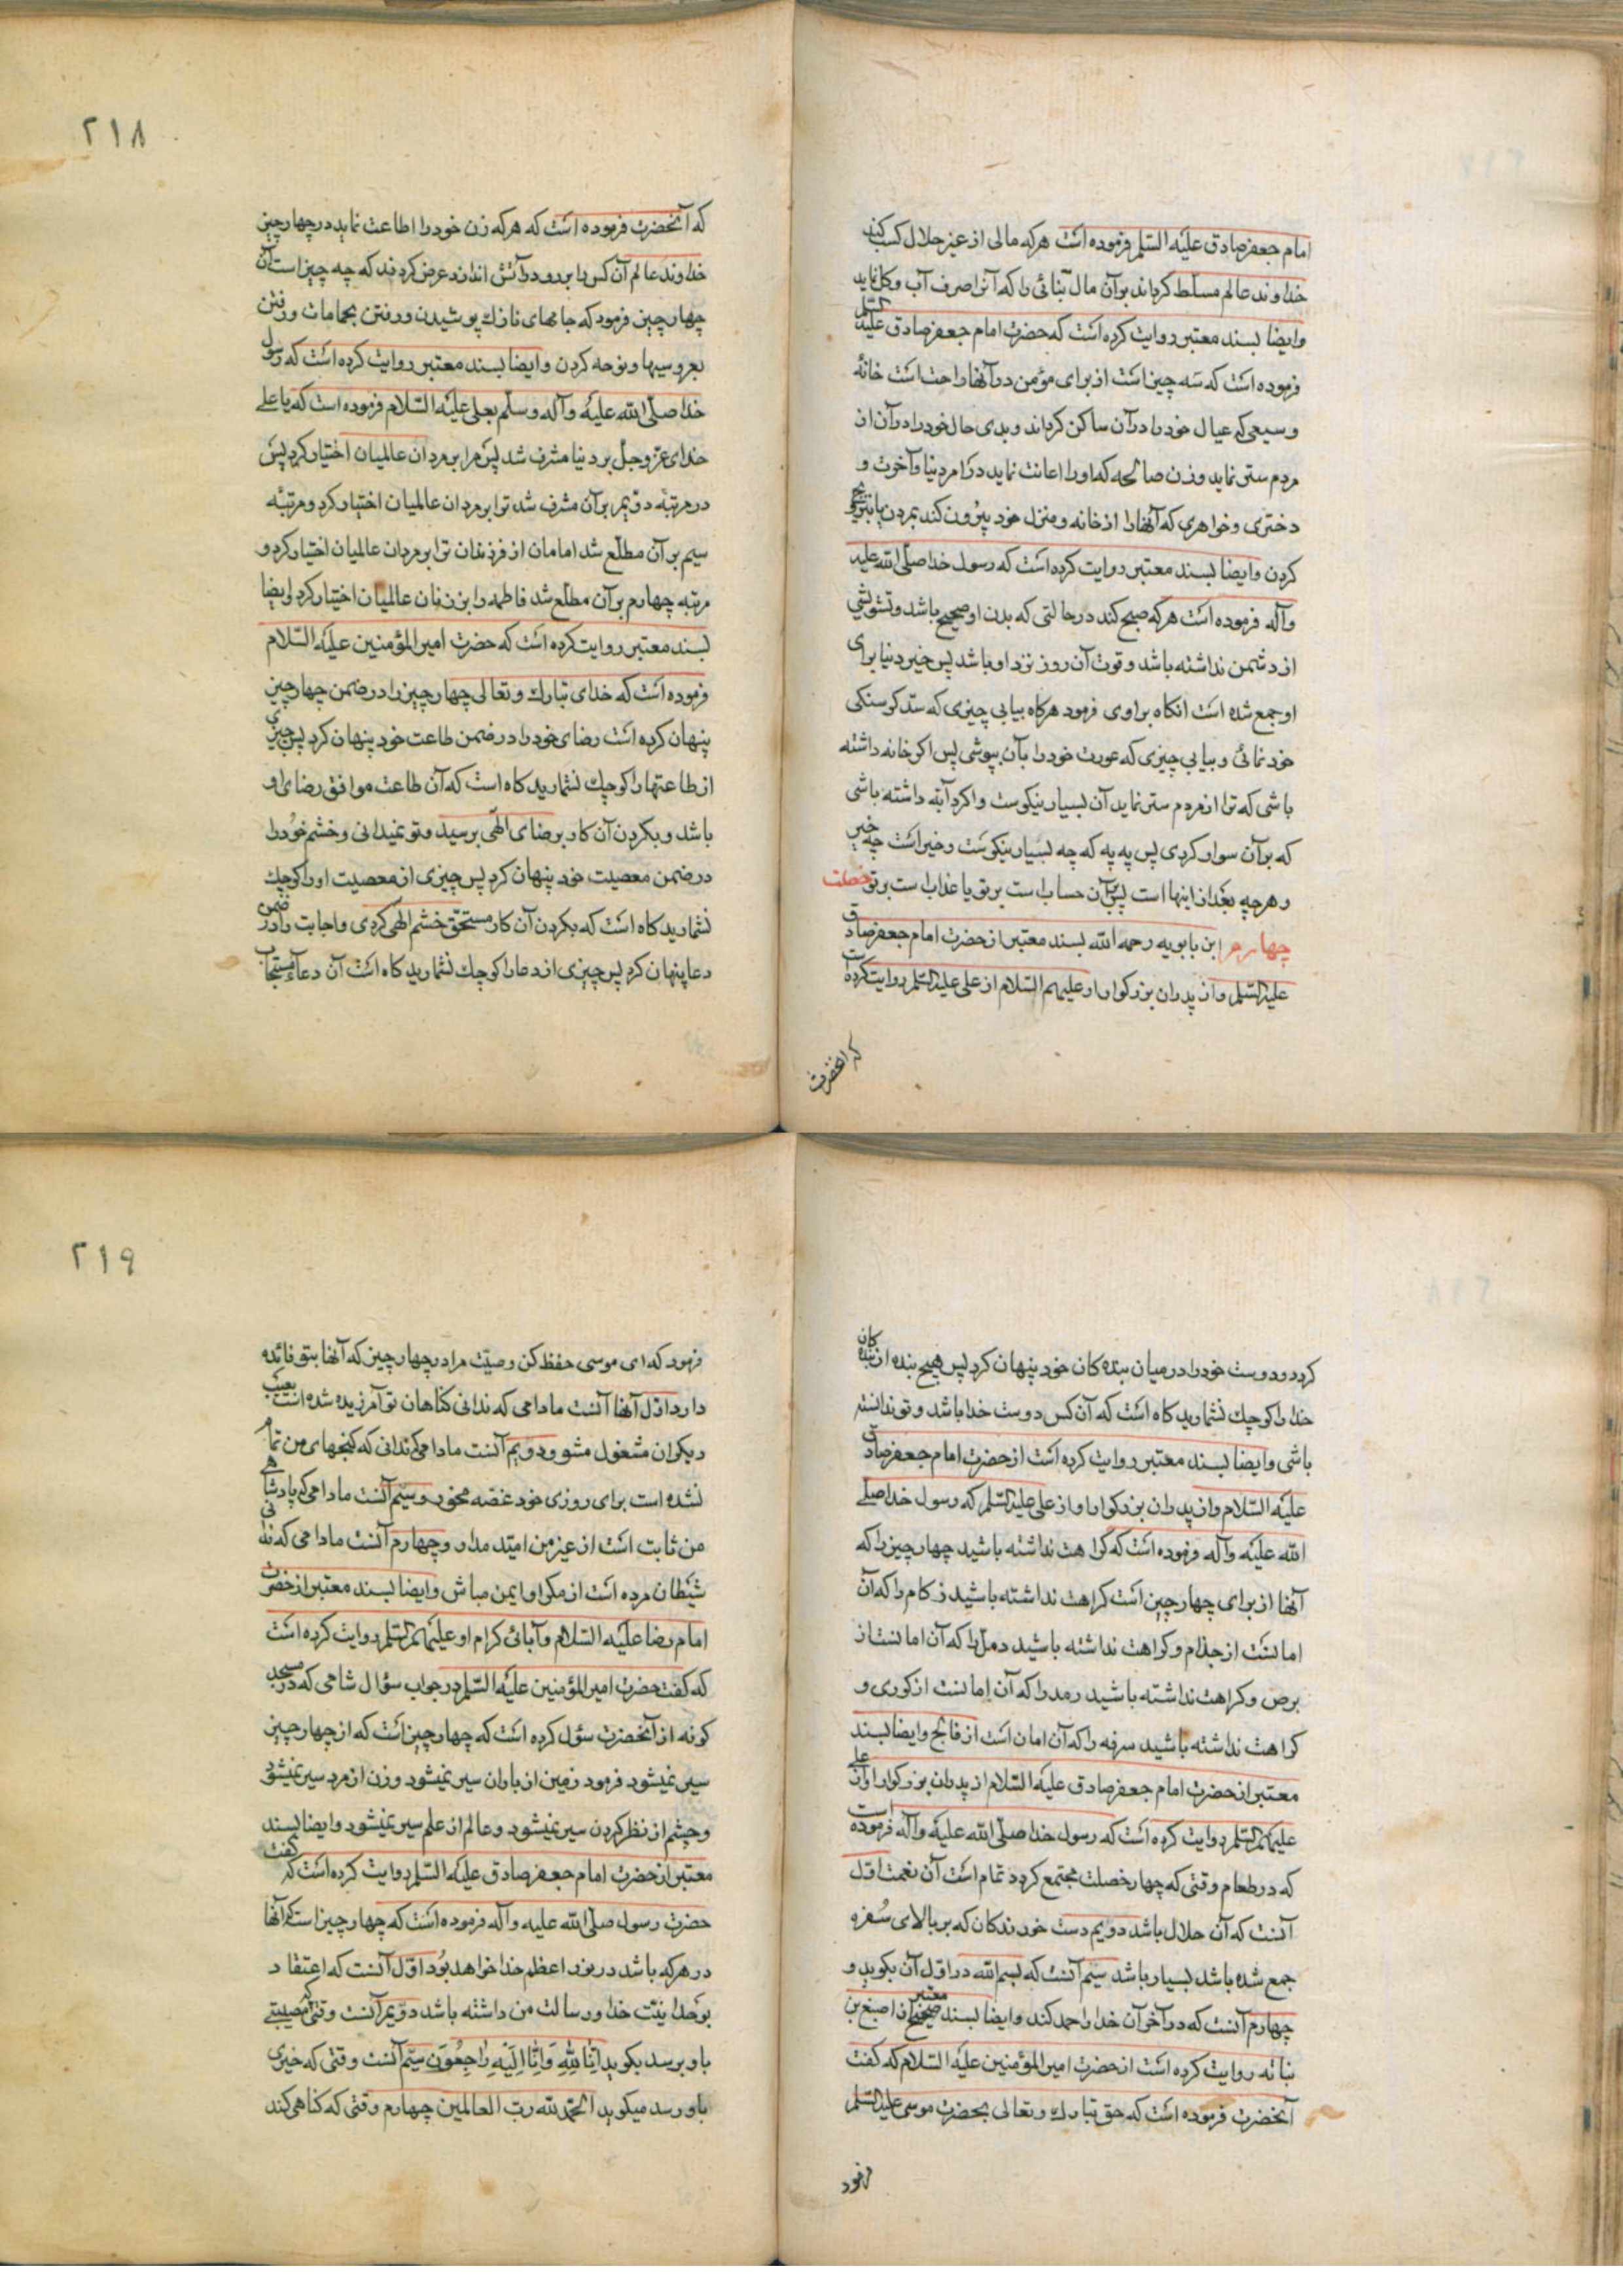 امام جعفر صادق علیه السلم فرموده است هر که مالی از غیر حلال کسب کند
خداوند عالم مسلط کرداند بر آن مال بنائی را که آنرا صرف آب و کل نماید
و ایضا بسند معتبر روایت کرده است که حضرت امام جعفر صادق علیه السلم
فرموده است که سه چیز است از برای مؤمن در آنها راحت است خانهٔ
وسیعی که عیال خود را در آن ساکن کرداند و بدی حال خود را در آن از
مردم ستر نماید و زن صالحه که او را اعانت نماید در امر دنیا و آخرت و
دختری و خواهری که آنها را از خانه و منزل خود بیرون کند بمردن یا بتزویج
کردن و ایضا بسند معتبر روایت کرده است که رسول خدا صلی الله علیه
وآله فرموده است هر که صبح کند در حالتی که بدن او صحیح باشد و تشویشی
از دشمن نداشته باشد و قوت آن روز نزد او باشد پس خیر دنیا برای
او جمع شده است انکاه براوی فرمود هرکاه بیابی چیزی که سد کرسنکی
خود نمائی و بیابی چیزی که عورت خود را بآن بپوشی پس اکر خانه داشته
باشی که ترا از مردم ستر نماید آن بسیار نیکوست و اکر دآبه داشته باشی
که بر آن سوار کردی پس په په که چه بسیار نیکوست و خیر است چه خیر
و هر چه بعد از اینها است پس آن حسابست بر تو یا عذابست بر تو خصلت
چهارم ابن بابویه رحمه الله بسند معتبر از حضرت امام جعفر صادق
علیه السلم و از پدران بزرکوار او علیهم السلام از علی علیه السلم روایت کرده است
که انحضرت
٢١٨
که آنحضرت فرموده است که هر که زن خود را اطاعت نماید در چهار چیز
خداوند عالم آن کس را برو در آتش اندازد عرض کردند که چه چیز است آن
چهار چیز فرمود که جامهای نازک پوشیدن و رفتن بحمامات و رفتن
بعروسیها و نوحه کردن و ایضا بسند معتبر روایت کرده است که رسول
خدا صلی الله علیه وآله وسلم بعلی علیه السلام فرموده است که یا علی
خدای عز وجل بر دنیا مشرف شد پس مرا بر مردان عالمیان اختیار کرد پس
در مرتبه دویم بر آن مشرف شد ترا بر مردان عالمیان اختیار کرد و مرتبهٔ
سیم بر آن مطلع شد امامان از فرزندان ترا بر مردان عالمیان اختیار کرد و
مرتبه چهارم بر آن مطلع شد فاطمه را بر زنان عالمیان اختیار کرد و ایضا
بسند معتبر روایت کرده است که حضرت امیر المؤمنین علیه السلام
فرموده است که خدای تبارک و تعالی چهار چیز را در ضمن چهار چیز
پنهان کرده است رضای خود را در ضمن طاعت خود پنهان کرد پس چیزی
از طاعتها را کوچک نشمارید کاه است که آن طاعت موافق رضای او
باشد و بکردن آن کار برضای الهی برسید و تو نمیدانی و خشم خود را
در ضمن معصیت خود پنهان کرد پس چیزی از معصیت او را کوچک
نشمارید کاه است که بکردن آن کار مستحق خشم الهی کردی و اجابت را در ضمن
دعا پنهان کرد پس چیزی از دعا را کوچک نشمارید کاه است آن دعاء مستجاب
کردد و دوست خود را در میان بنده کان خود پنهان کرد پس هیچ بنده از بنده کان
خدا را کوچک نشمارید کاه است که آن کس دوست خدا باشد و تو ندانسته
باشی و ایضا بسند معتبر روایت کرده است از حضرت امام جعفر صادق
علیه السلام و از پدران بزرکوار او از علی علیه السلم که رسول خدا صلی
الله علیه وآله فرموده است که کراهت نداشته باشید چهار چیز را که
آنها از برای چهار چیز است کراهت نداشته باشید زکام را که آن
امانست از جذام و کراهت نداشته باشید دمل را که آن امانست از
برص و کراهت نداشته باشید رمد را که آن امانست از کوری و
کراهت نداشته باشید سرفه را که آن امان است از فالج و ایضا بسند
معتبر از حضرت امام جعفر صادق علیه السلام از پدران بزرکوار او از علی
علیهم السلم روایت کرده است که رسول خدا صلی الله علیه وآله فرموده است
که در طعام وقتی که چهار خصلت مجتمع کردد تمام است آن نعمت اول
آنست که آن حلال باشد دویم دست خورندکان که بر بالای سفره
جمع شده باشد بسیار باشد سیم آنست که بسم الله در اول آن بکوید و
چهارم آنست که در آخر آن خدا را حمد کند و ایضا بسند معتبر صحیح از اصبغ بن
نباته روایت کرده است از حضرت امیر المؤمنین علیه السلام که کفت
آنحضرت فرموده است که حق تبارک و تعالی بحضرت موسی علیه السلم
فرمود
٢١٩
فرمود که ای موسی حفظ کن وصیت مرا در چهار چیز که آنها بتو فائده
دارد اول آنها آنست مادامی که ندانی کناهان تو آمرزیده شده است بعیب
دیکران مشغول مشو و دویم آنست مادامی که ندانی که کنجهای من تمام
نشده است برای روزی خود غصه مخور و سیم آنست مادامی که پادشاهی
من ثابت است از غیر من امید مدار و چهارم آنست مادامی که ندانی
شیطان مرده است از مکر او ایمن مباش و ایضا بسند معتبر از حضرت
امام رضا علیه السلام و آبائی کرام او علیهم السلم روایت کرده است
که کفت حضرت امیر المؤمنین علیه السلم در جواب سؤال شامی که در مسجد
کوفه از آنحضرت سؤل کرده است که چهار چیز است که از چهار چیز
سیر نمیشود فرمود زمین از باران سیر نمیشود و زن از مرد سیر نمیشود
و چشم از نظر کردن سیر نمیشود و عالم از علم سیر نمیشود و ایضا بسند
معتبر از حضرت امام جعفر صادق علیه السلم روایت کرده است که کفت
حضرت رسول صلی الله علیه وآله فرموده است که چهار چیز است که آنها
در هر که باشد در نور اعظم خدا خواهد بود اول آنست که اعتقاد
بوحدانیت خدا و رسالت من داشته باشد دویم آنست وقتی که مصیبتی
باو برسد بکوید انا لله وانا الیه راجعون سیم آنست وقتی که خیری
باو رسد میکوید الحمد لله رب العالمین چهارم وقتی که کناهی کند